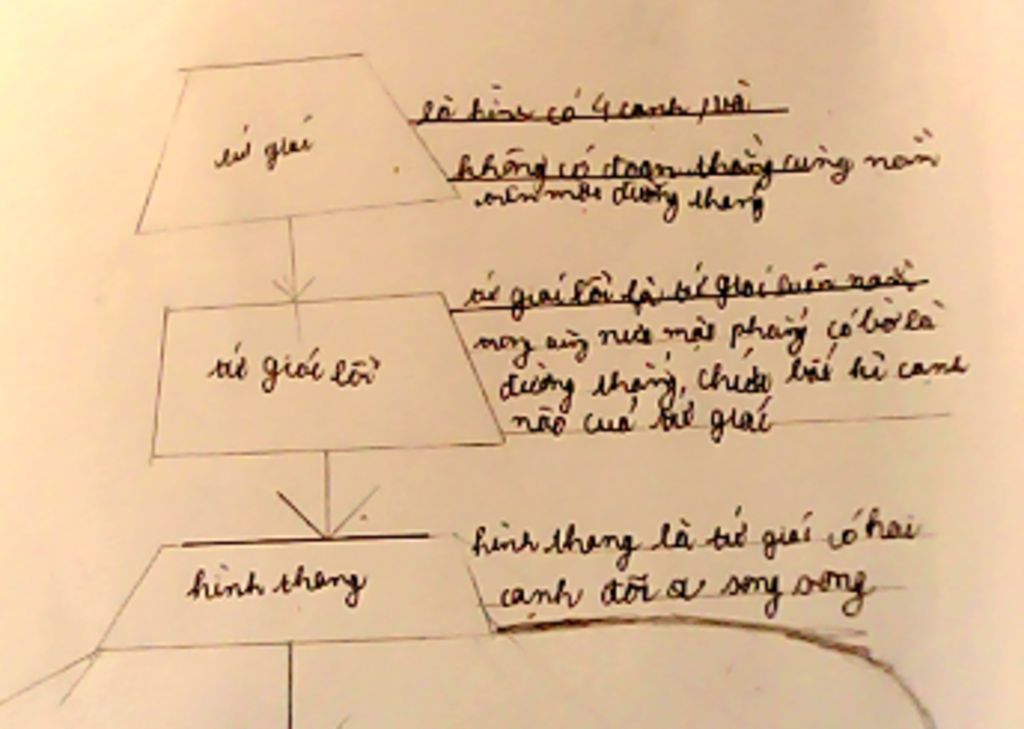 tứ giác
là hình có 4 cạnh, mà
không có đoạn thẳng cùng nằm
trên một đường thẳng
tứ giác lồi
tứ giác lồi là tứ giác luôn nằm
trong cùng nửa mặt phẳng có bờ là
đường thẳng, chứa bất kì cạnh
nào của tứ giác
hình thang
hình thang là tứ giác có hai
cạnh đối song song